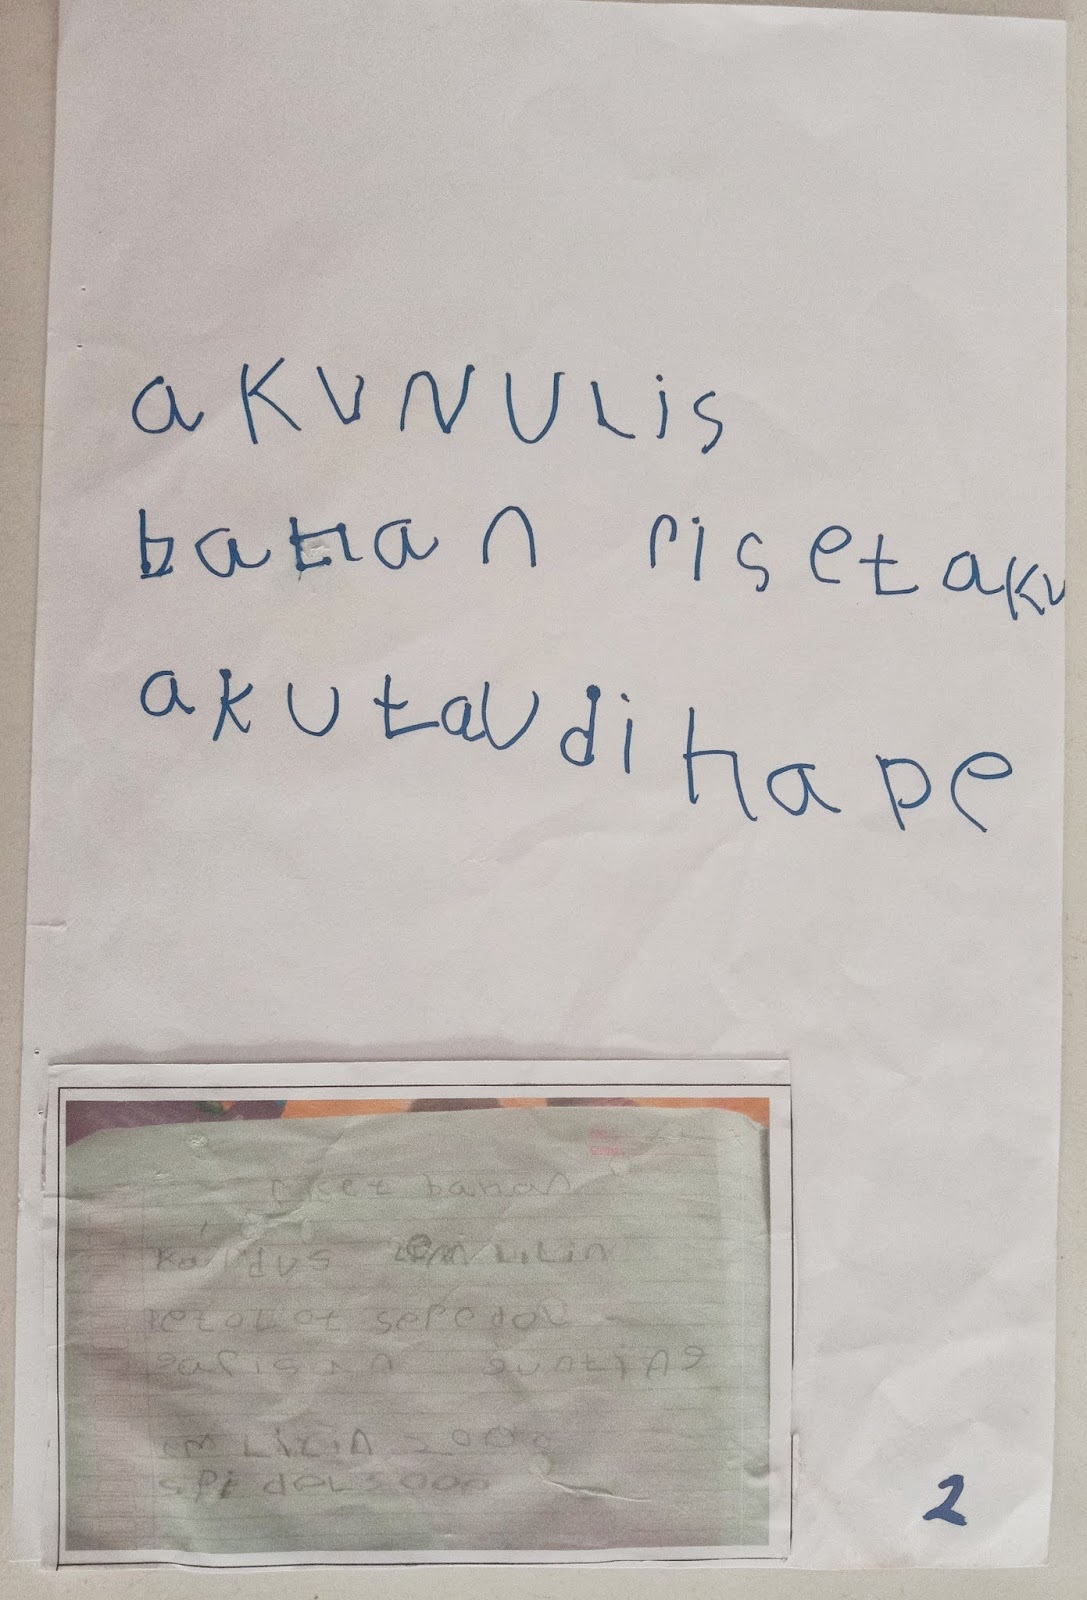 aKUNULis
baHan risetaku
akutaudihape
riset bahan
Kardus Lem LiLin
sepedol
gunting
Lem LiLin 2000
spidoL 5000
2